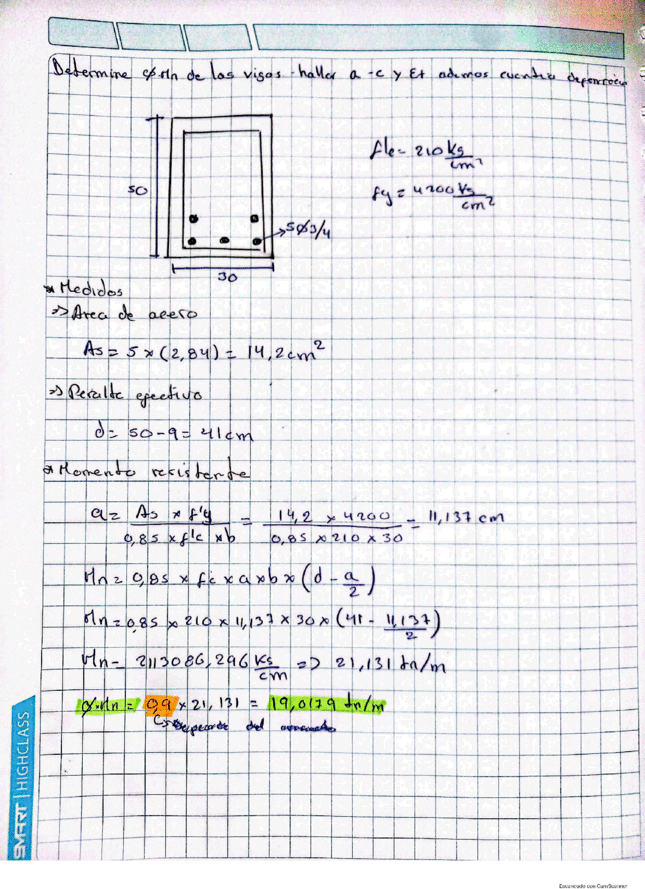 Determine ϕMn de las vigas -hallar a -c y Et ademas cuentia
f'c= 210 kg/cm²
fy = 4200 kg/cm²
50
5ϕ3/4
30
* Medidas
=> Area de acero
As = 5 x (2,84) = 14,2cm²
=> Peralte efectivo
d= 50-9= 41cm
* Momento resistente
a= As x f'y / 0,85 x f'c x b = 14,2 x 4200 / 0,85 x 210 x 30 = 11,137 cm
Mn= 0,85 x f'c x a x b x (d - a/2)
Mn=0,85 x 210 x 11,137 x 30 x (41 - 11,137/2)
Mn= 2113086,296 kg/cm => 21,131 tn/m
ϕ.Mn = 0,9 x 21,131 = 19,0179 tn/m
del
SMART | HIGHCLASS
Escaneado con CamScanner